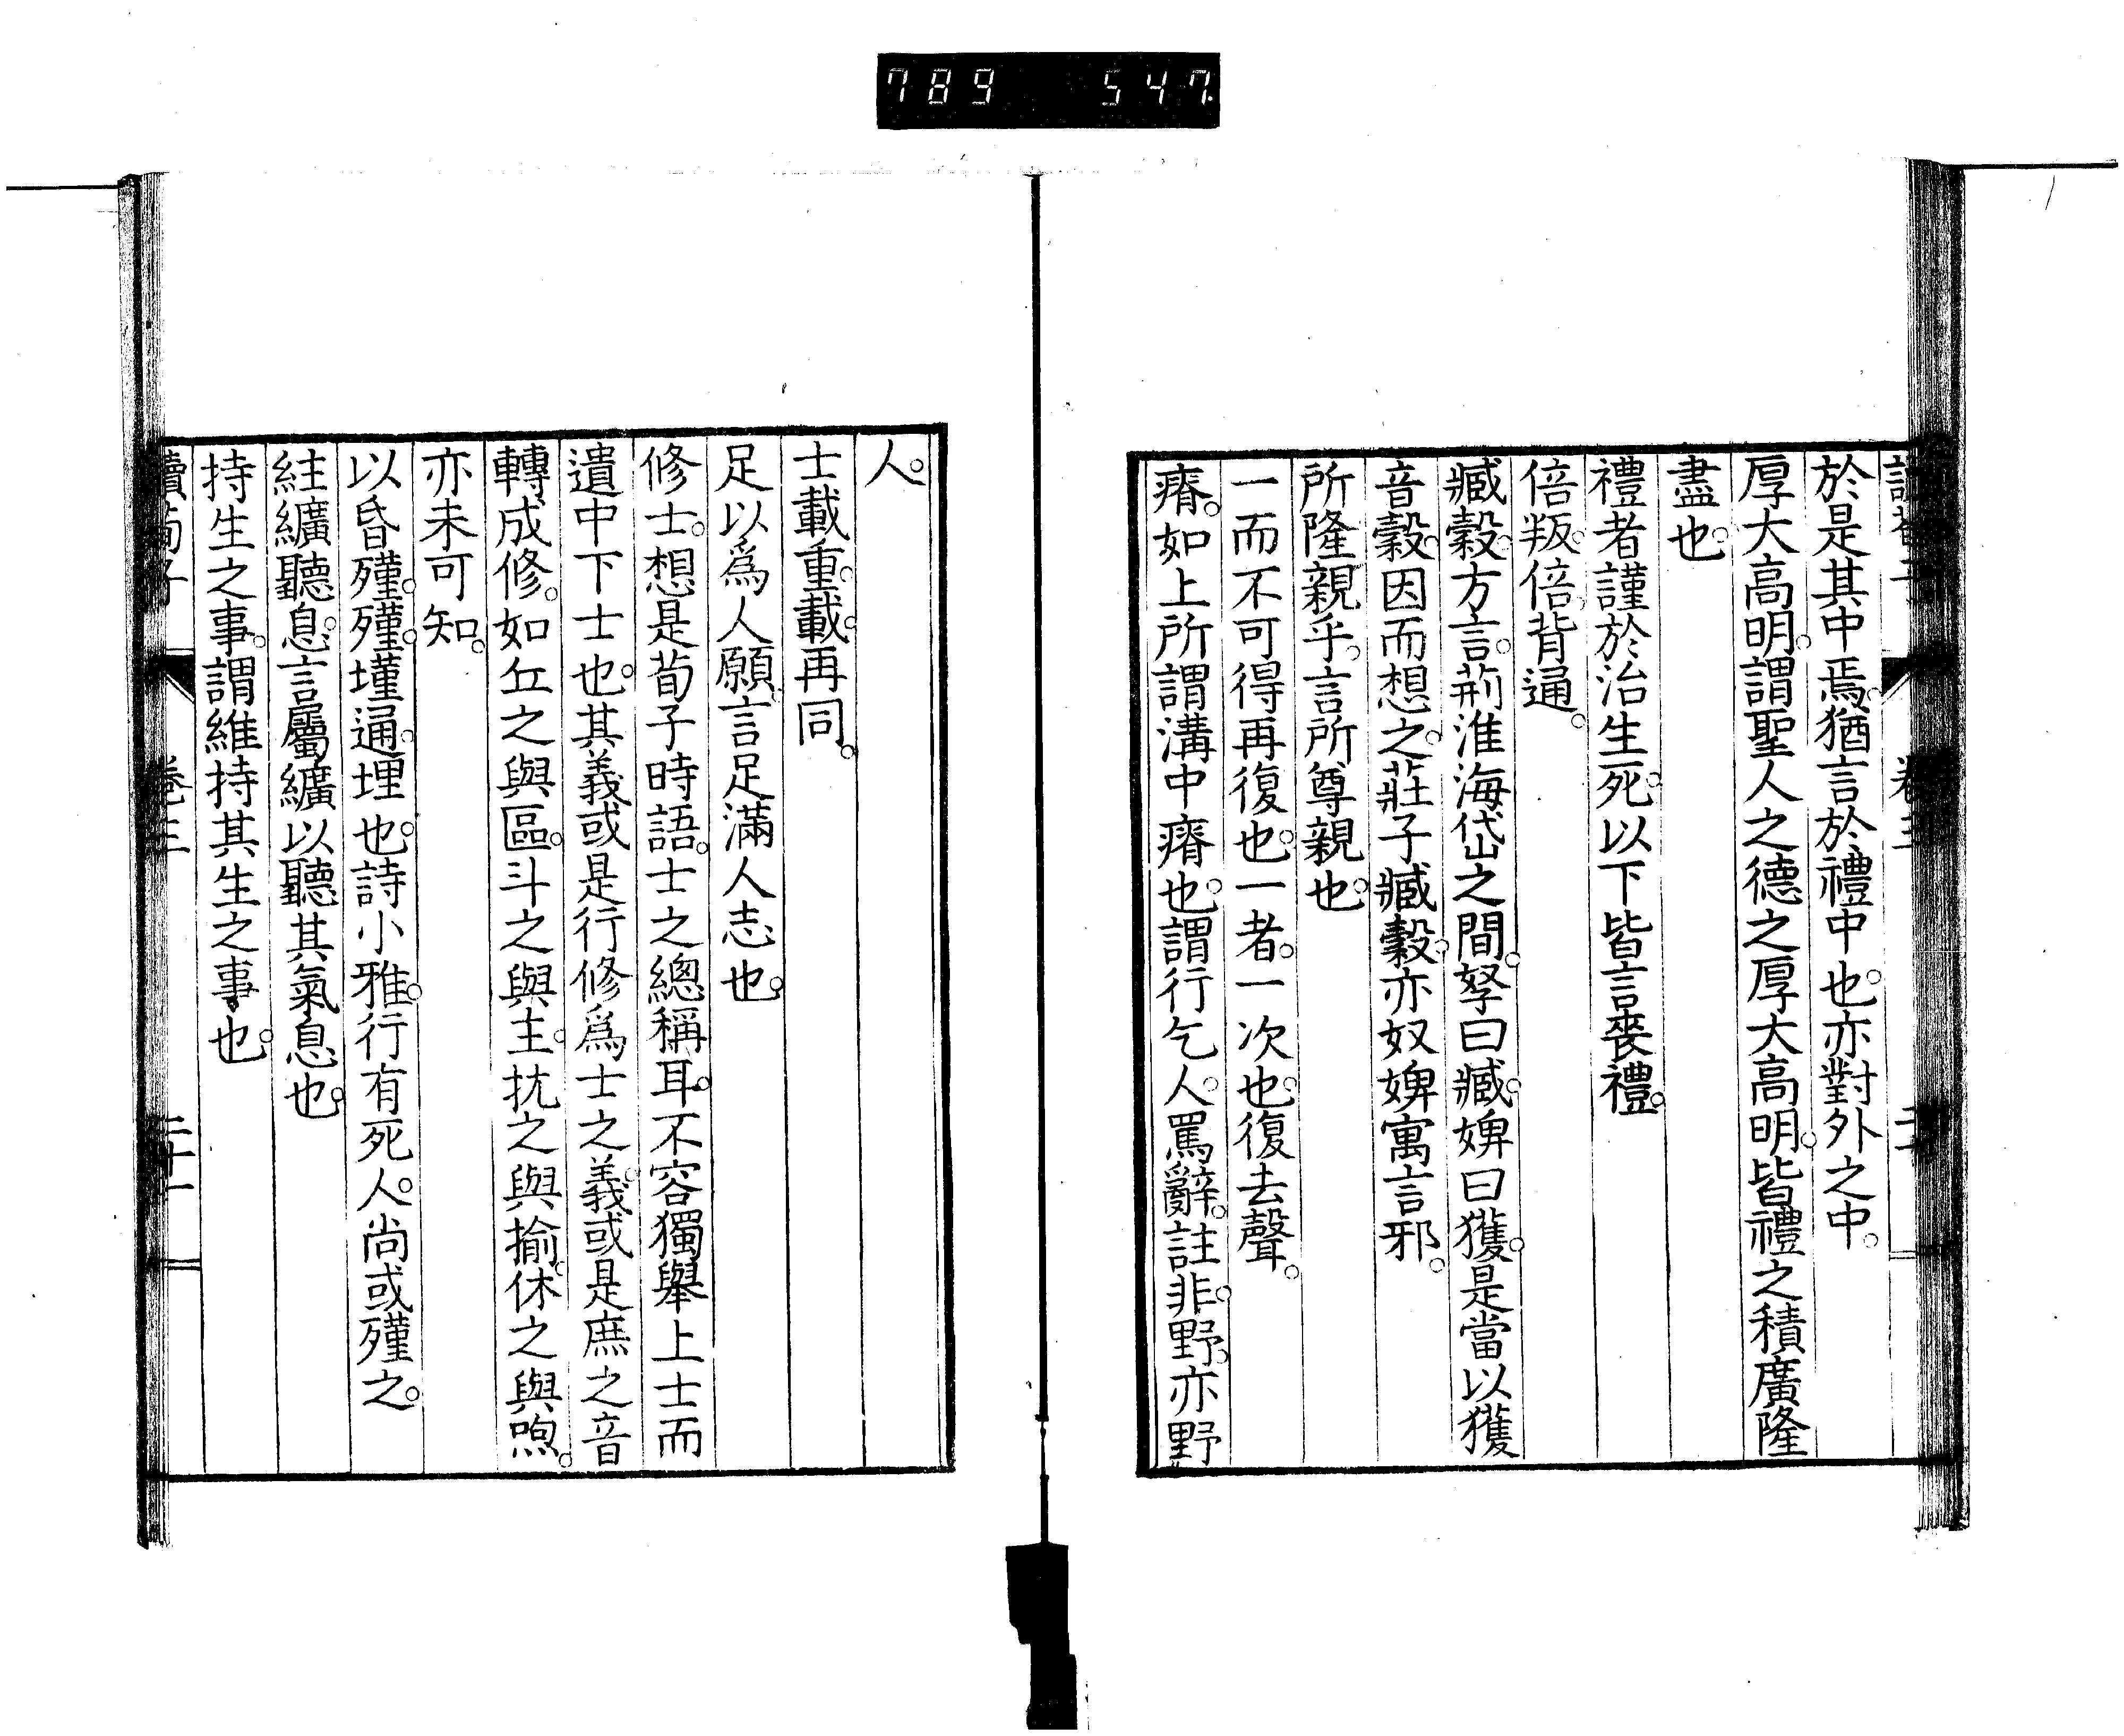 789 547
於是其中焉。猶言於禮中也。亦對外之中。
厚大高明。謂聖人之德之厚大高明。皆禮之積廣隆
盡也。
禮者謹於治生死。以下皆言喪禮。
倍叛。倍背通。
臧穀。方言。荊淮海岱之間。孥曰臧。婢曰獲。是當以獲
音穀。因而想之。莊子臧穀。亦奴婢寓言邪。
所隆親乎。言所尊親也。
一而不可得再復也。一者。一次也。復去聲。
瘠。如上所謂溝中瘠也。謂行乞人。罵辭。註非。野。亦野
人。
士載重。載再同。
足以爲人願。言足滿人志也。
修士。想是荀子時語。士之總稱耳。不容獨舉上士而
遺中下士也。其義或是行修爲士之義。或是庶之音
轉成修。如丘之與區。斗之與主。抗之與揄。休之與煦。
亦未可知。
以昏殣。殣。墐通。埋也。詩小雅。行有死人。尚或殣之。
紸纊聽息。言屬纊以聽其氣息也。
持生之事。謂維持其生之事也。
讀荀子 卷三 二十一